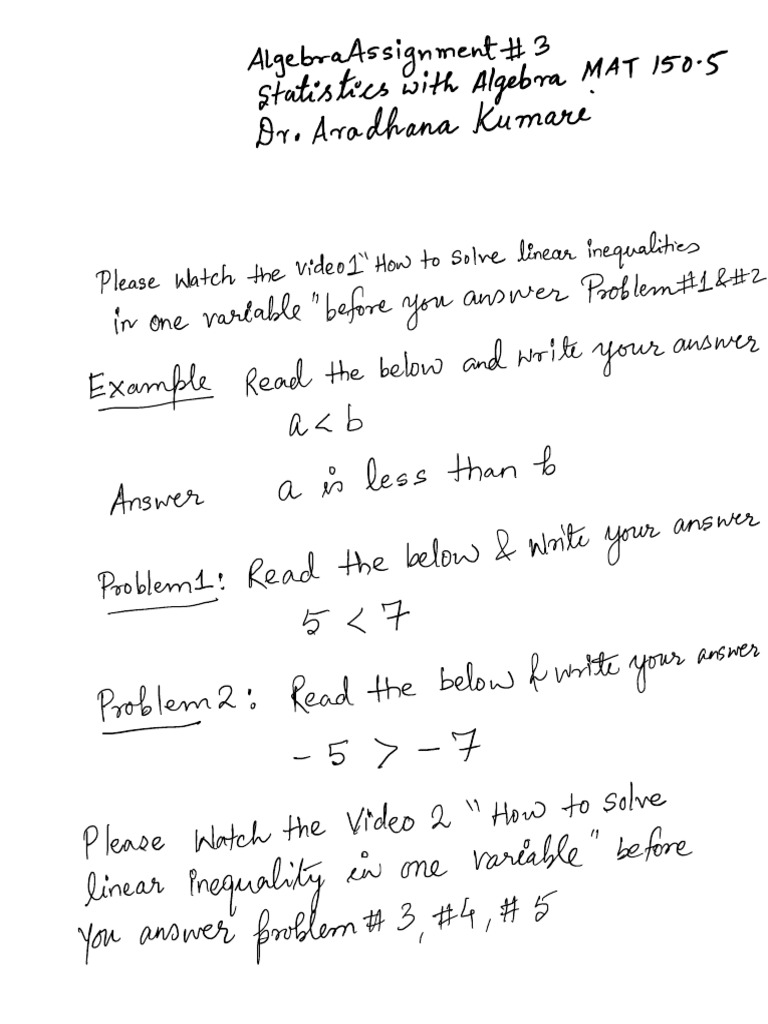 Algebra Assignment # 3
Statistics with Algebra MAT 150.5
Dr. Aradhana Kumari
Please Watch the Video1 "How to solve linear inequalities
in one variable" before you answer Problem#1&#2
Example Read the below and write your answer
a < b
Answer a is less than b
Problem1: Read the below & Write your answer
5 < 7
Problem2: Read the below & write your answer
- 5 > - 7
Please Watch the Video 2 "How to solve
linear inequality in one variable" before
you answer problem # 3, #4, # 5